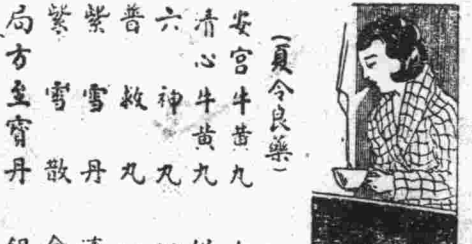 (夏令良藥)
安宮牛黄九
清心牛黄九
六神九
普救丸
紫雪丹
紫雪散
局方至寶丹